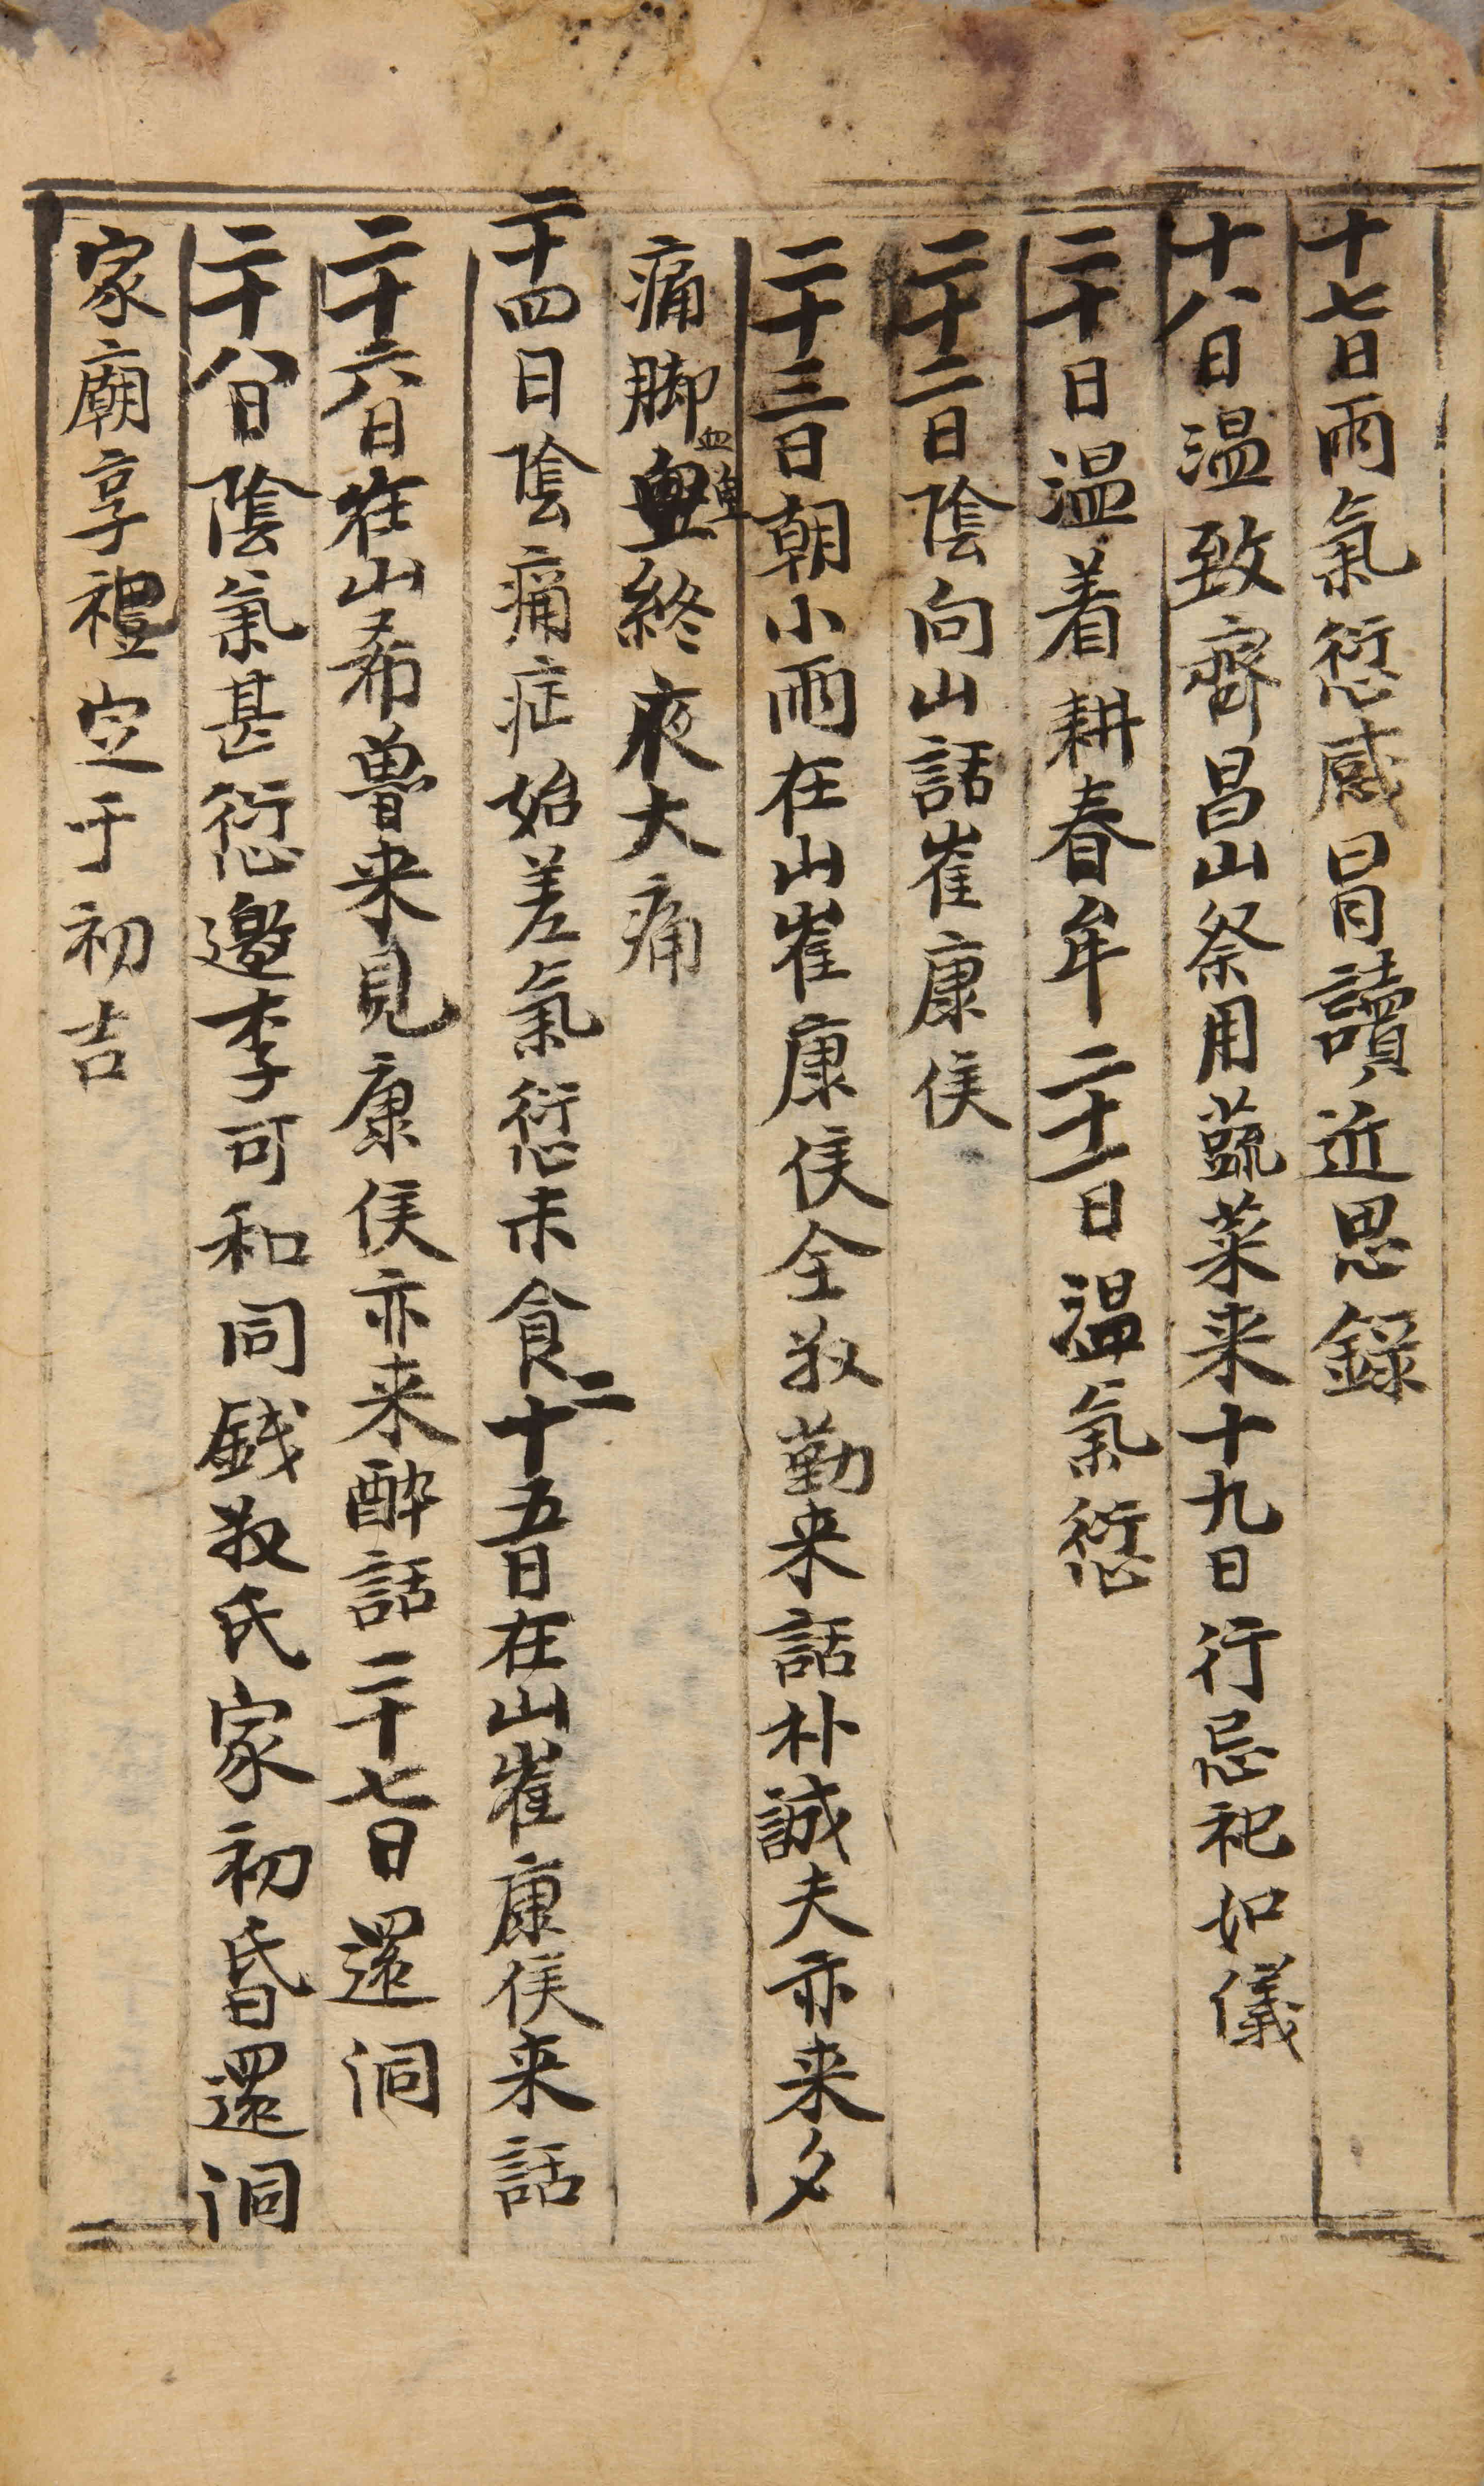 十七日雨氣愆感冒讀近思錄
十八日温致齊昌山祭用蔬菜来十九日行忌祀如儀
二十日温着耕春牟二十一日温氣愆
二十二日陰向山話崔康侯
二十三日朝小雨在山崔康侯全敬勤来話朴誠夫亦来夕
痛脚血單終夜大痛
二十四日陰痛症始差氣愆未食二十五日在山崔康侯来話
二十六日在山希魯来見康侯亦来酔話二十七日還洞
二十八日陰氣甚愆邀李可和同餞敬氏家初昏還洞
家廟享禮定于初吉